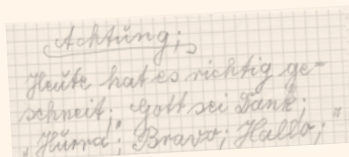 Achtung;
Heute hat es richtig ge-
schneit; Gott sei Dank;
„Hurra“; Bravo; Hallo;“